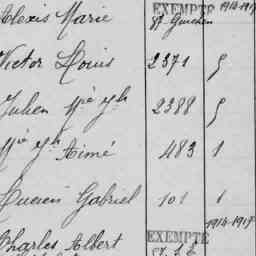 Alexis Marie EXEMPTÉ 1914-1919
St Guichen
Victor Louis 2371 5
Julien Mie Jh 2388 5
Mie Jh Aimé 483 1
Lucien Gabriel 101 1
1914-1919
Charles Albert EXEMPTÉ